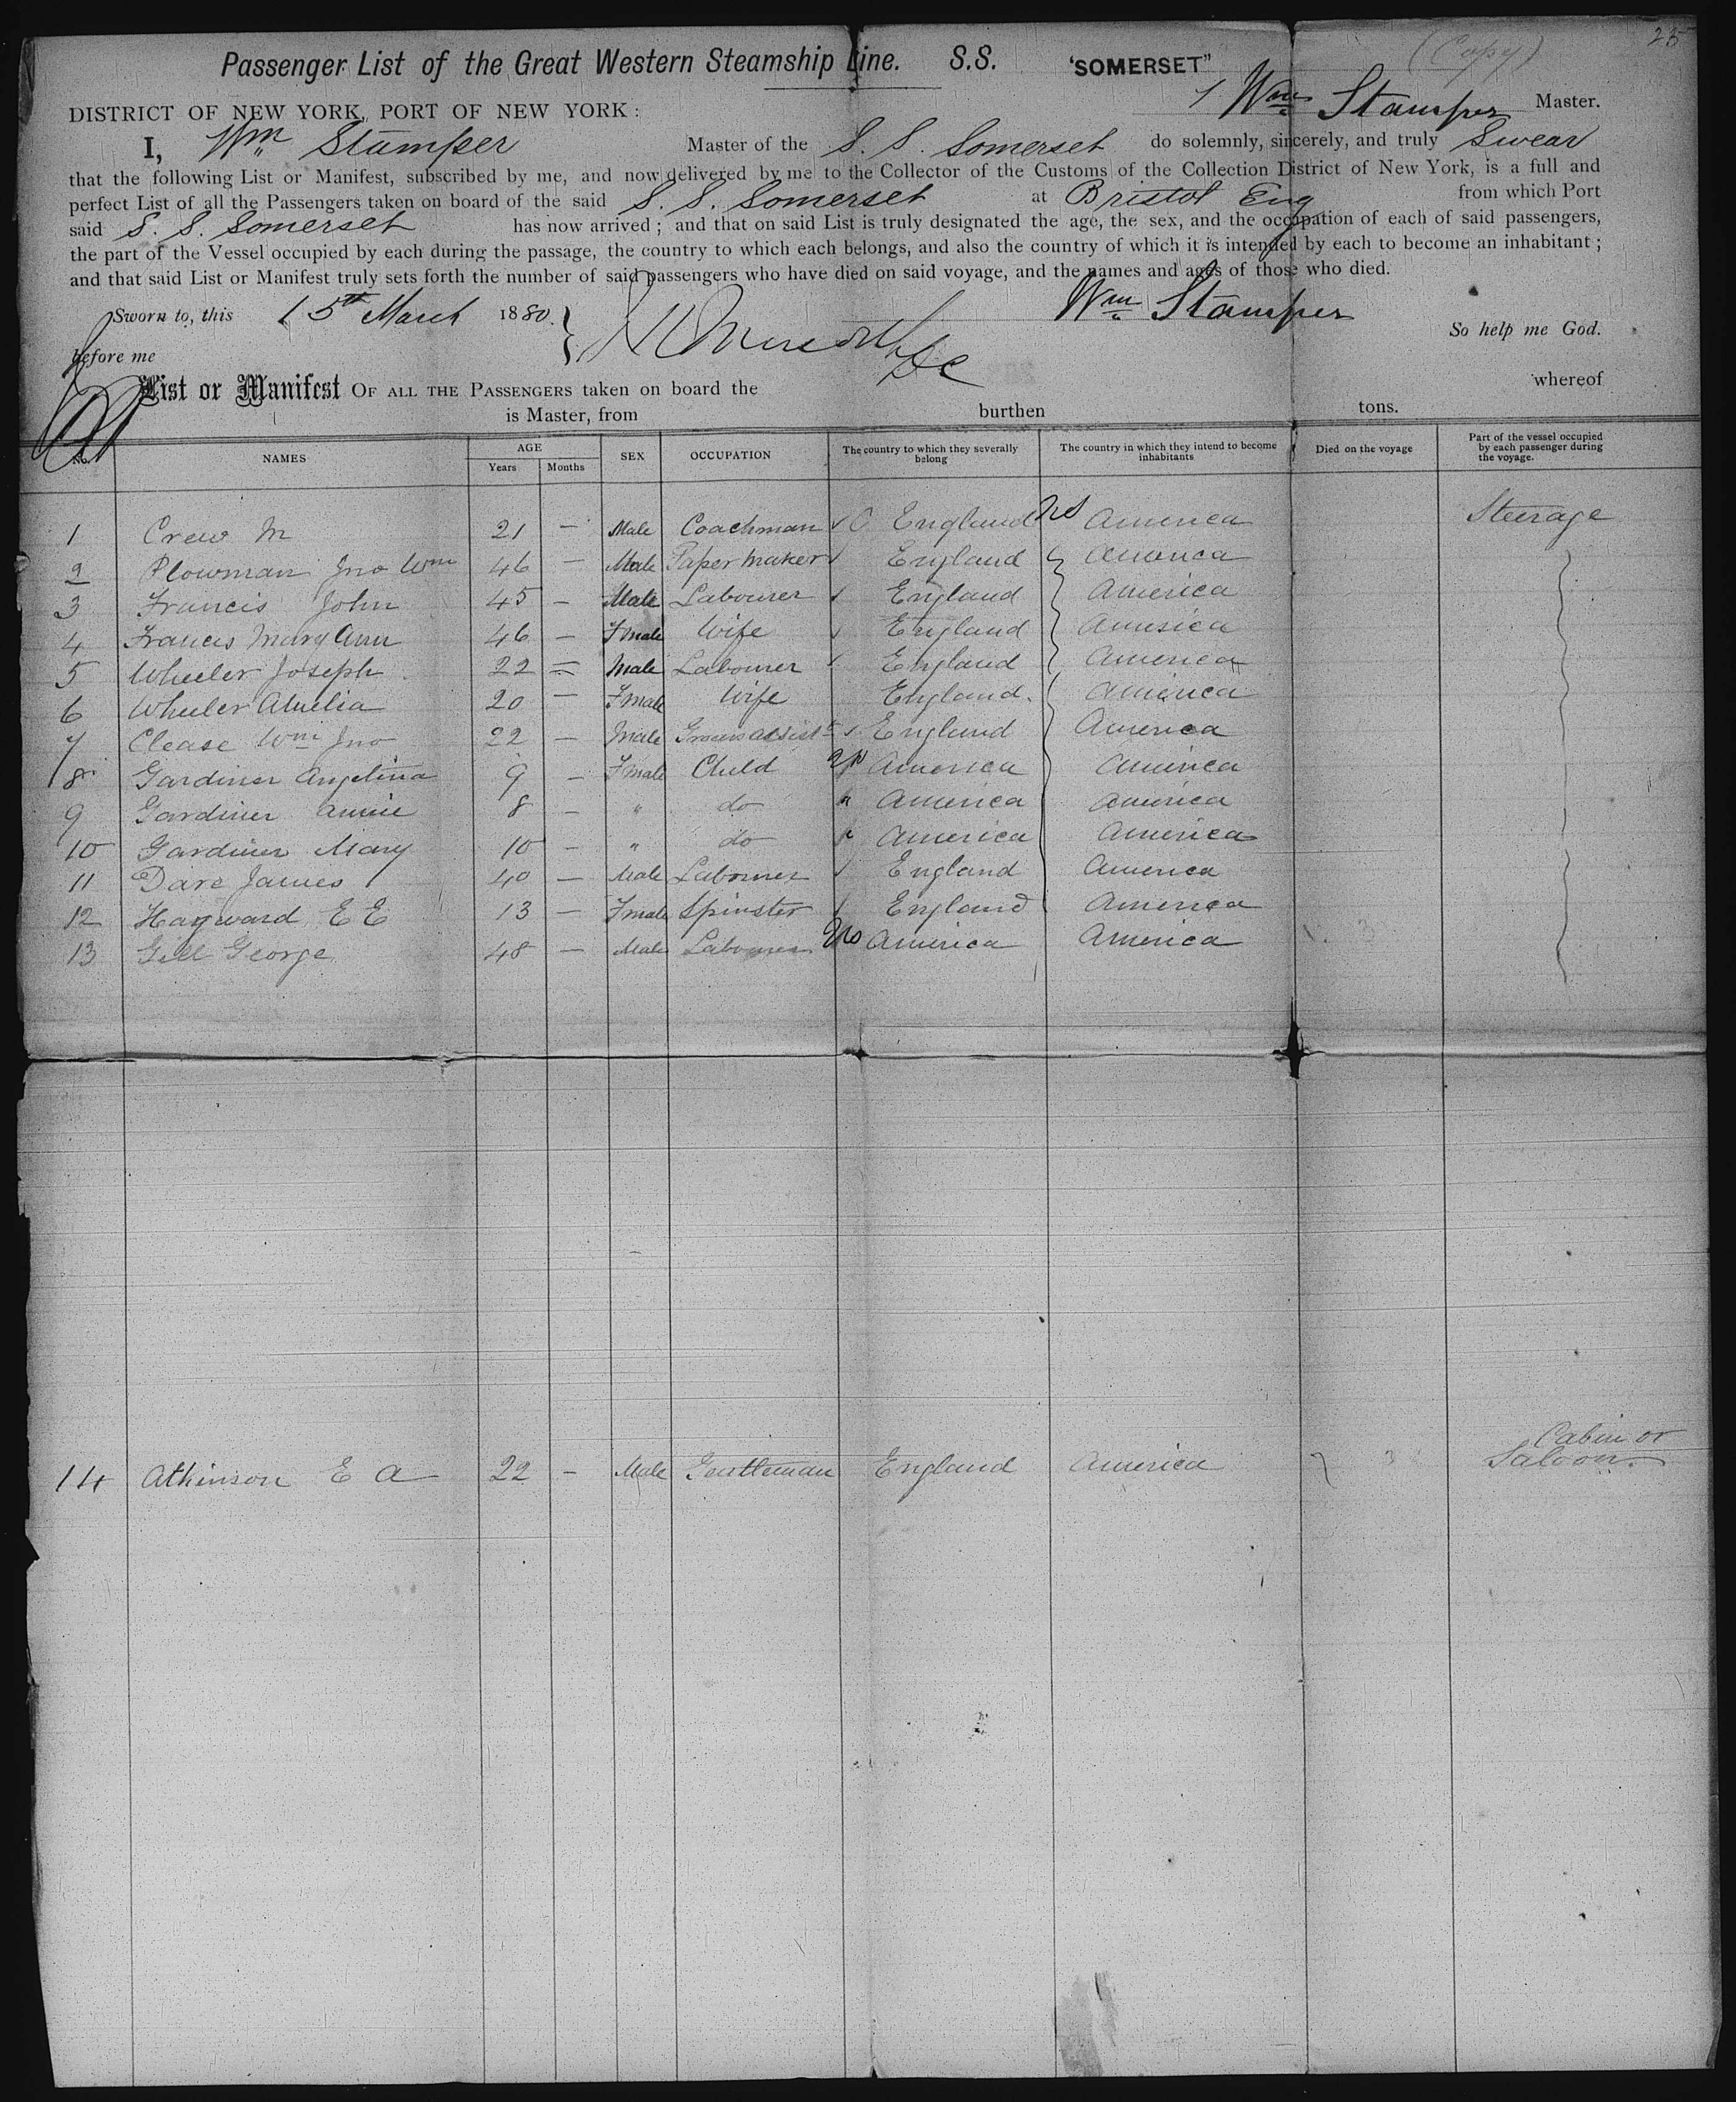 (Copy) 25
Passenger List of the Great Western Steamship Line. S.S. "SOMERSET"
DISTRICT OF NEW YORK, PORT OF NEW YORK : Wm Stamper Master.
I, Wm Stamper Master of the S. S. Somerset do solemnly, sincerely, and truly Swear
that the following List or Manifest, subscribed by me, and now delivered by me to the Collector of the Customs of the Collection District of New York, is a full and
perfect List of all the Passengers taken on board of the said S. S. Somerset at Bristol Eng from which Port
said S. S. Somerset has now arrived ; and that on said List is truly designated the age, the sex, and the occupation of each of said passengers,
the part of the Vessel occupied by each during the passage, the country to which each belongs, and also the country of which it is intended by each to become an inhabitant ;
and that said List or Manifest truly sets forth the number of said passengers who have died on said voyage, and the names and ages of those who died.
Sworn to, this 15th March 1880. Wm Stamper
So help me God.
before me
List or Manifest OF ALL THE PASSENGERS taken on board the whereof
is Master, from burthen tons.
No. NAMES AGE Years Months SEX OCCUPATION The country to which they severally belong The country in which they intend to become inhabitants Died on the voyage Part of the vessel occupied by each passenger during the voyage.
1 Crew M 21 — Male Coachman England America Steerage
2 Plowman Jno Wm 46 — Male Paper maker England America
3 Francis John 45 — Male Labourer England America
4 Francis Mary Ann 46 — Fmale Wife England America
5 Wheeler Joseph 22 — Male Labourer England America
6 Wheeler Amelia 20 — Fmale Wife England. America
7 Clease Wm Jno 22 — Male Grocers assist England America
8 Gardiner Angelina 9 — Fmale Child America America
9 Gardiner Annie 8 — " do America America
10 Gardiner Mary 10 — " do America America
11 Dare James 40 — Male Labourer England America
12 Hayward E E 13 — Fmale Spinster England America
13 Gill George 48 — Male Labourer America America
14 Atkinson E A 22 — Male Gentleman England America Cabin or Saloon.